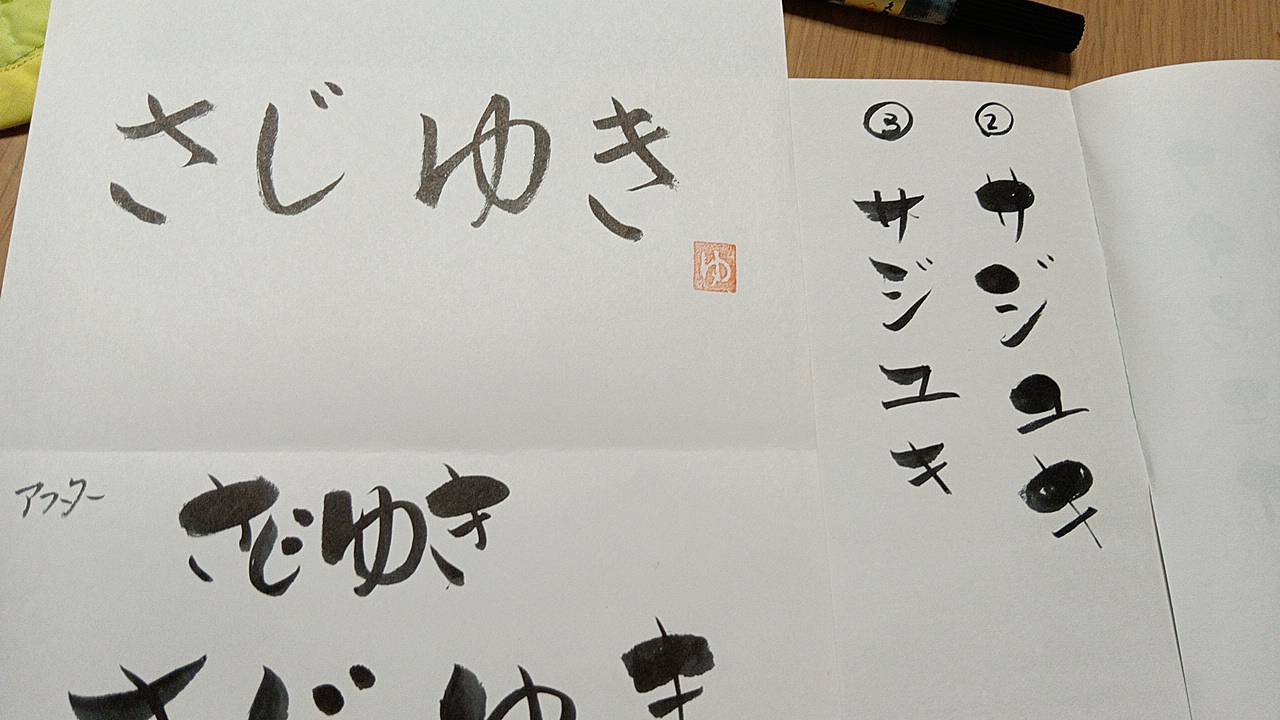 さじゆき
ゆ
アフター
さじゆき
さじゆき
②
サジユキ
③
サジユキ